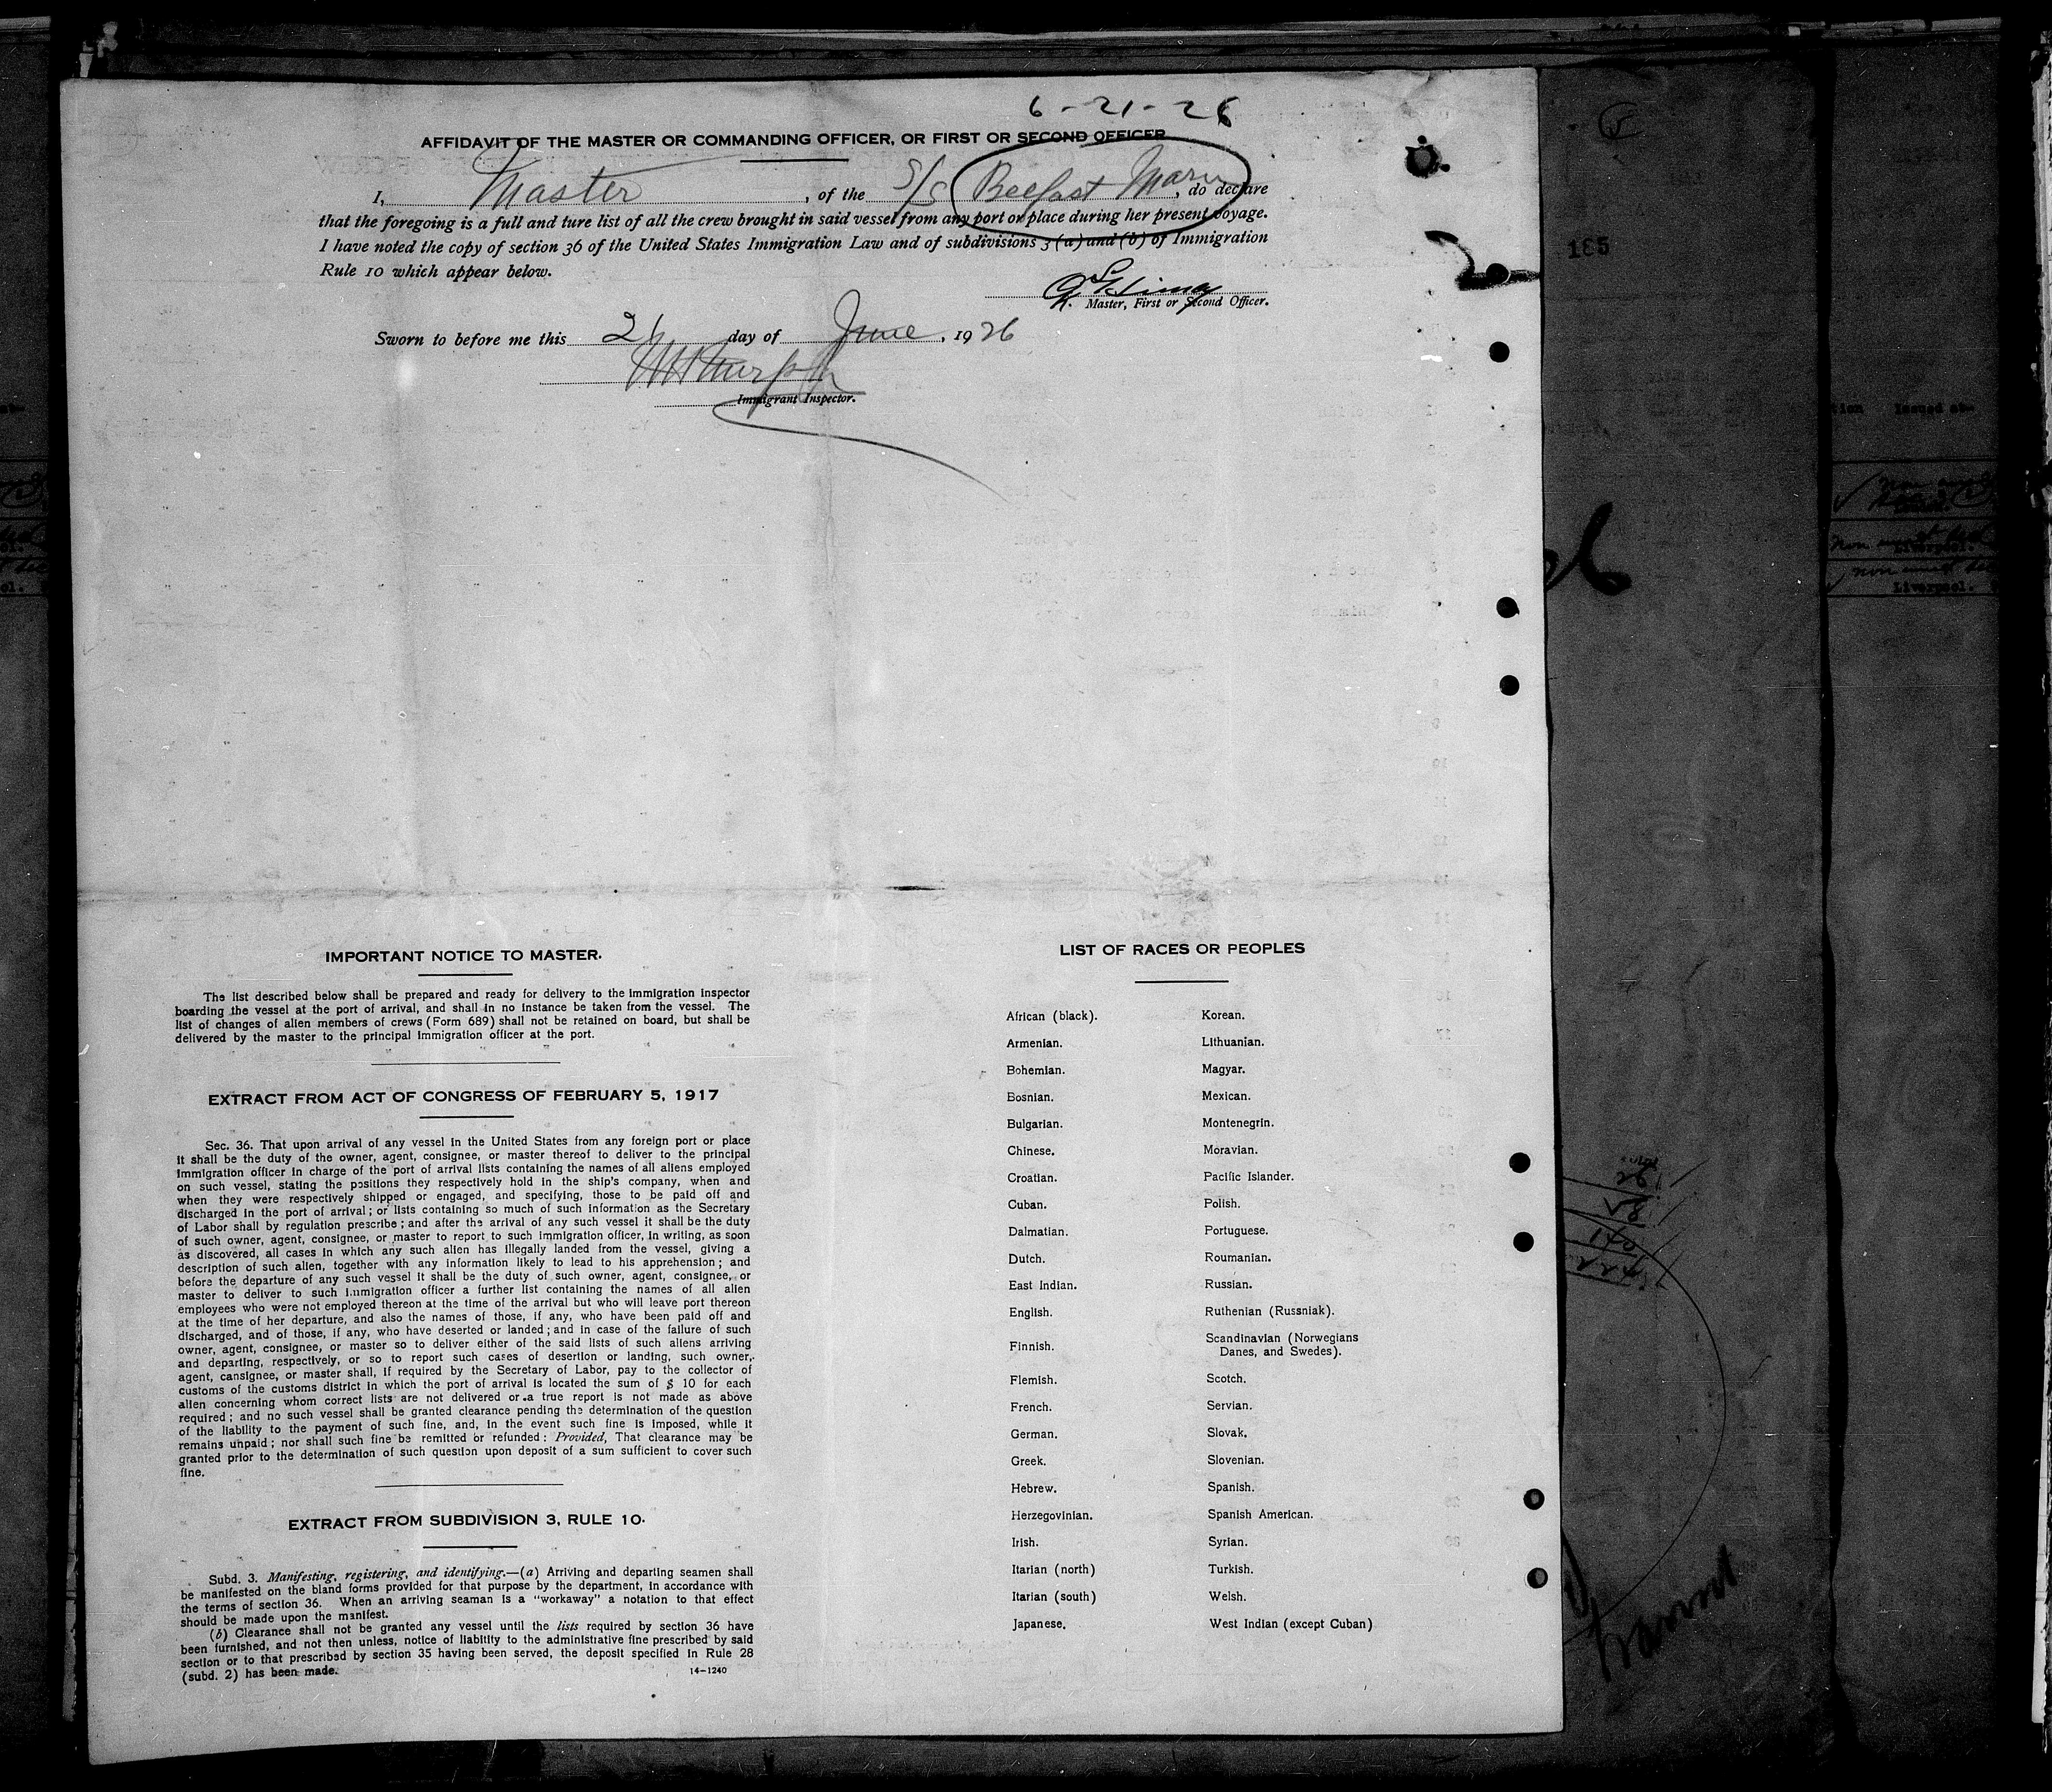 6-21-26
AFFIDAVIT OF THE MASTER OR COMMANDING OFFICER, OR FIRST OR SECOND OFFICER
I, Master, of the S/S Belfast Maru, do declare
that the foregoing is a full and ture list of all the crew brought in said vessel from any port or place during her present voyage.
I have noted the copy of section 36 of the United States Immigration Law and of subdivisions 3 (a) and (b) of Immigration
Rule 10 which appear below.
Master, First or Second Officer.
Sworn to before me this 21 day of June, 1926
Immigrant Inspector.
185
IMPORTANT NOTICE TO MASTER.
The list described below shall be prepared and ready for delivery to the immigration inspector
boarding the vessel at the port of arrival, and shall in no instance be taken from the vessel. The
list of changes of alien members of crews (Form 689) shall not be retained on board, but shall be
delivered by the master to the principal immigration officer at the port.
EXTRACT FROM ACT OF CONGRESS OF FEBRUARY 5, 1917
Sec. 36. That upon arrival of any vessel in the United States from any foreign port or place
it shall be the duty of the owner, agent, consignee, or master thereof to deliver to the principal
immigration officer in charge of the port of arrival lists containing the names of all aliens employed
on such vessel, stating the positions they respectively hold in the ship's company, when and
when they were respectively shipped or engaged, and specifying, those to be paid off and
discharged in the port of arrival; or lists containing so much of such information as the Secretary
of Labor shall by regulation prescribe; and after the arrival of any such vessel it shall be the duty
of such owner, agent, consignee, or master to report to such immigration officer, in writing, as soon
as discovered, all cases in which any such alien has illegally landed from the vessel, giving a
description of such alien, together with any information likely to lead to his apprehension; and
before the departure of any such vessel it shall be the duty of such owner, agent, consignee, or
master to deliver to such immigration officer a further list containing the names of all alien
employees who were not employed thereon at the time of the arrival but who will leave port thereon
at the time of her departure, and also the names of those, if any, who have been paid off and
discharged, and of those, if any, who have deserted or landed; and in case of the failure of such
owner, agent, consignee, or master so to deliver either of the said lists of such aliens arriving
and departing, respectively, or so to report such cases of desertion or landing, such owner,
agent, cansignee, or master shall, if required by the Secretary of Labor, pay to the collector of
customs of the customs district in which the port of arrival is located the sum of $ 10 for each
alien concerning whom correct lists are not delivered or a true report is not made as above
required; and no such vessel shall be granted clearance pending the determination of the question
of the liability to the payment of such fine, and, in the event such fine is imposed, while it
remains unpaid; nor shall such fine be remitted or refunded: Provided, That clearance may be
granted prior to the determination of such question upon deposit of a sum sufficient to cover such
fine.
EXTRACT FROM SUBDIVISION 3, RULE 10.
Subd. 3. Manifesting, registering, and identifying.—(a) Arriving and departing seamen shall
be manifested on the bland forms provided for that purpose by the department, in accordance with
the terms of section 36. When an arriving seaman is a "workaway" a notation to that effect
should be made upon the manifest.
(b) Clearance shall not be granted any vessel until the lists required by section 36 have
been furnished, and not then unless, notice of liabitity to the administrative fine prescribed by said
section or to that prescribed by section 35 having been served, the deposit specified in Rule 28
(subd. 2) has been made.
14-1240
LIST OF RACES OR PEOPLES
African (black).
Armenian.
Bohemian.
Bosnian.
Bulgarian.
Chinese.
Croatian.
Cuban.
Dalmatian.
Dutch.
East Indian.
English.
Finnish.
Flemish.
French.
German.
Greek.
Hebrew.
Herzegovinian.
Irish.
Itarian (north)
Itarian (south)
Japanese.
Korean.
Lithuanian.
Magyar.
Mexican.
Montenegrin.
Moravian.
Pacific Islander.
Polish.
Portuguese.
Roumanian.
Russian.
Ruthenian (Russniak).
Scandinavian (Norwegians
Danes, and Swedes).
Scotch.
Servian.
Slovak.
Slovenian.
Spanish.
Spanish American.
Syrian.
Turkish.
Welsh.
West Indian (except Cuban)
Issued at
Liverpool.